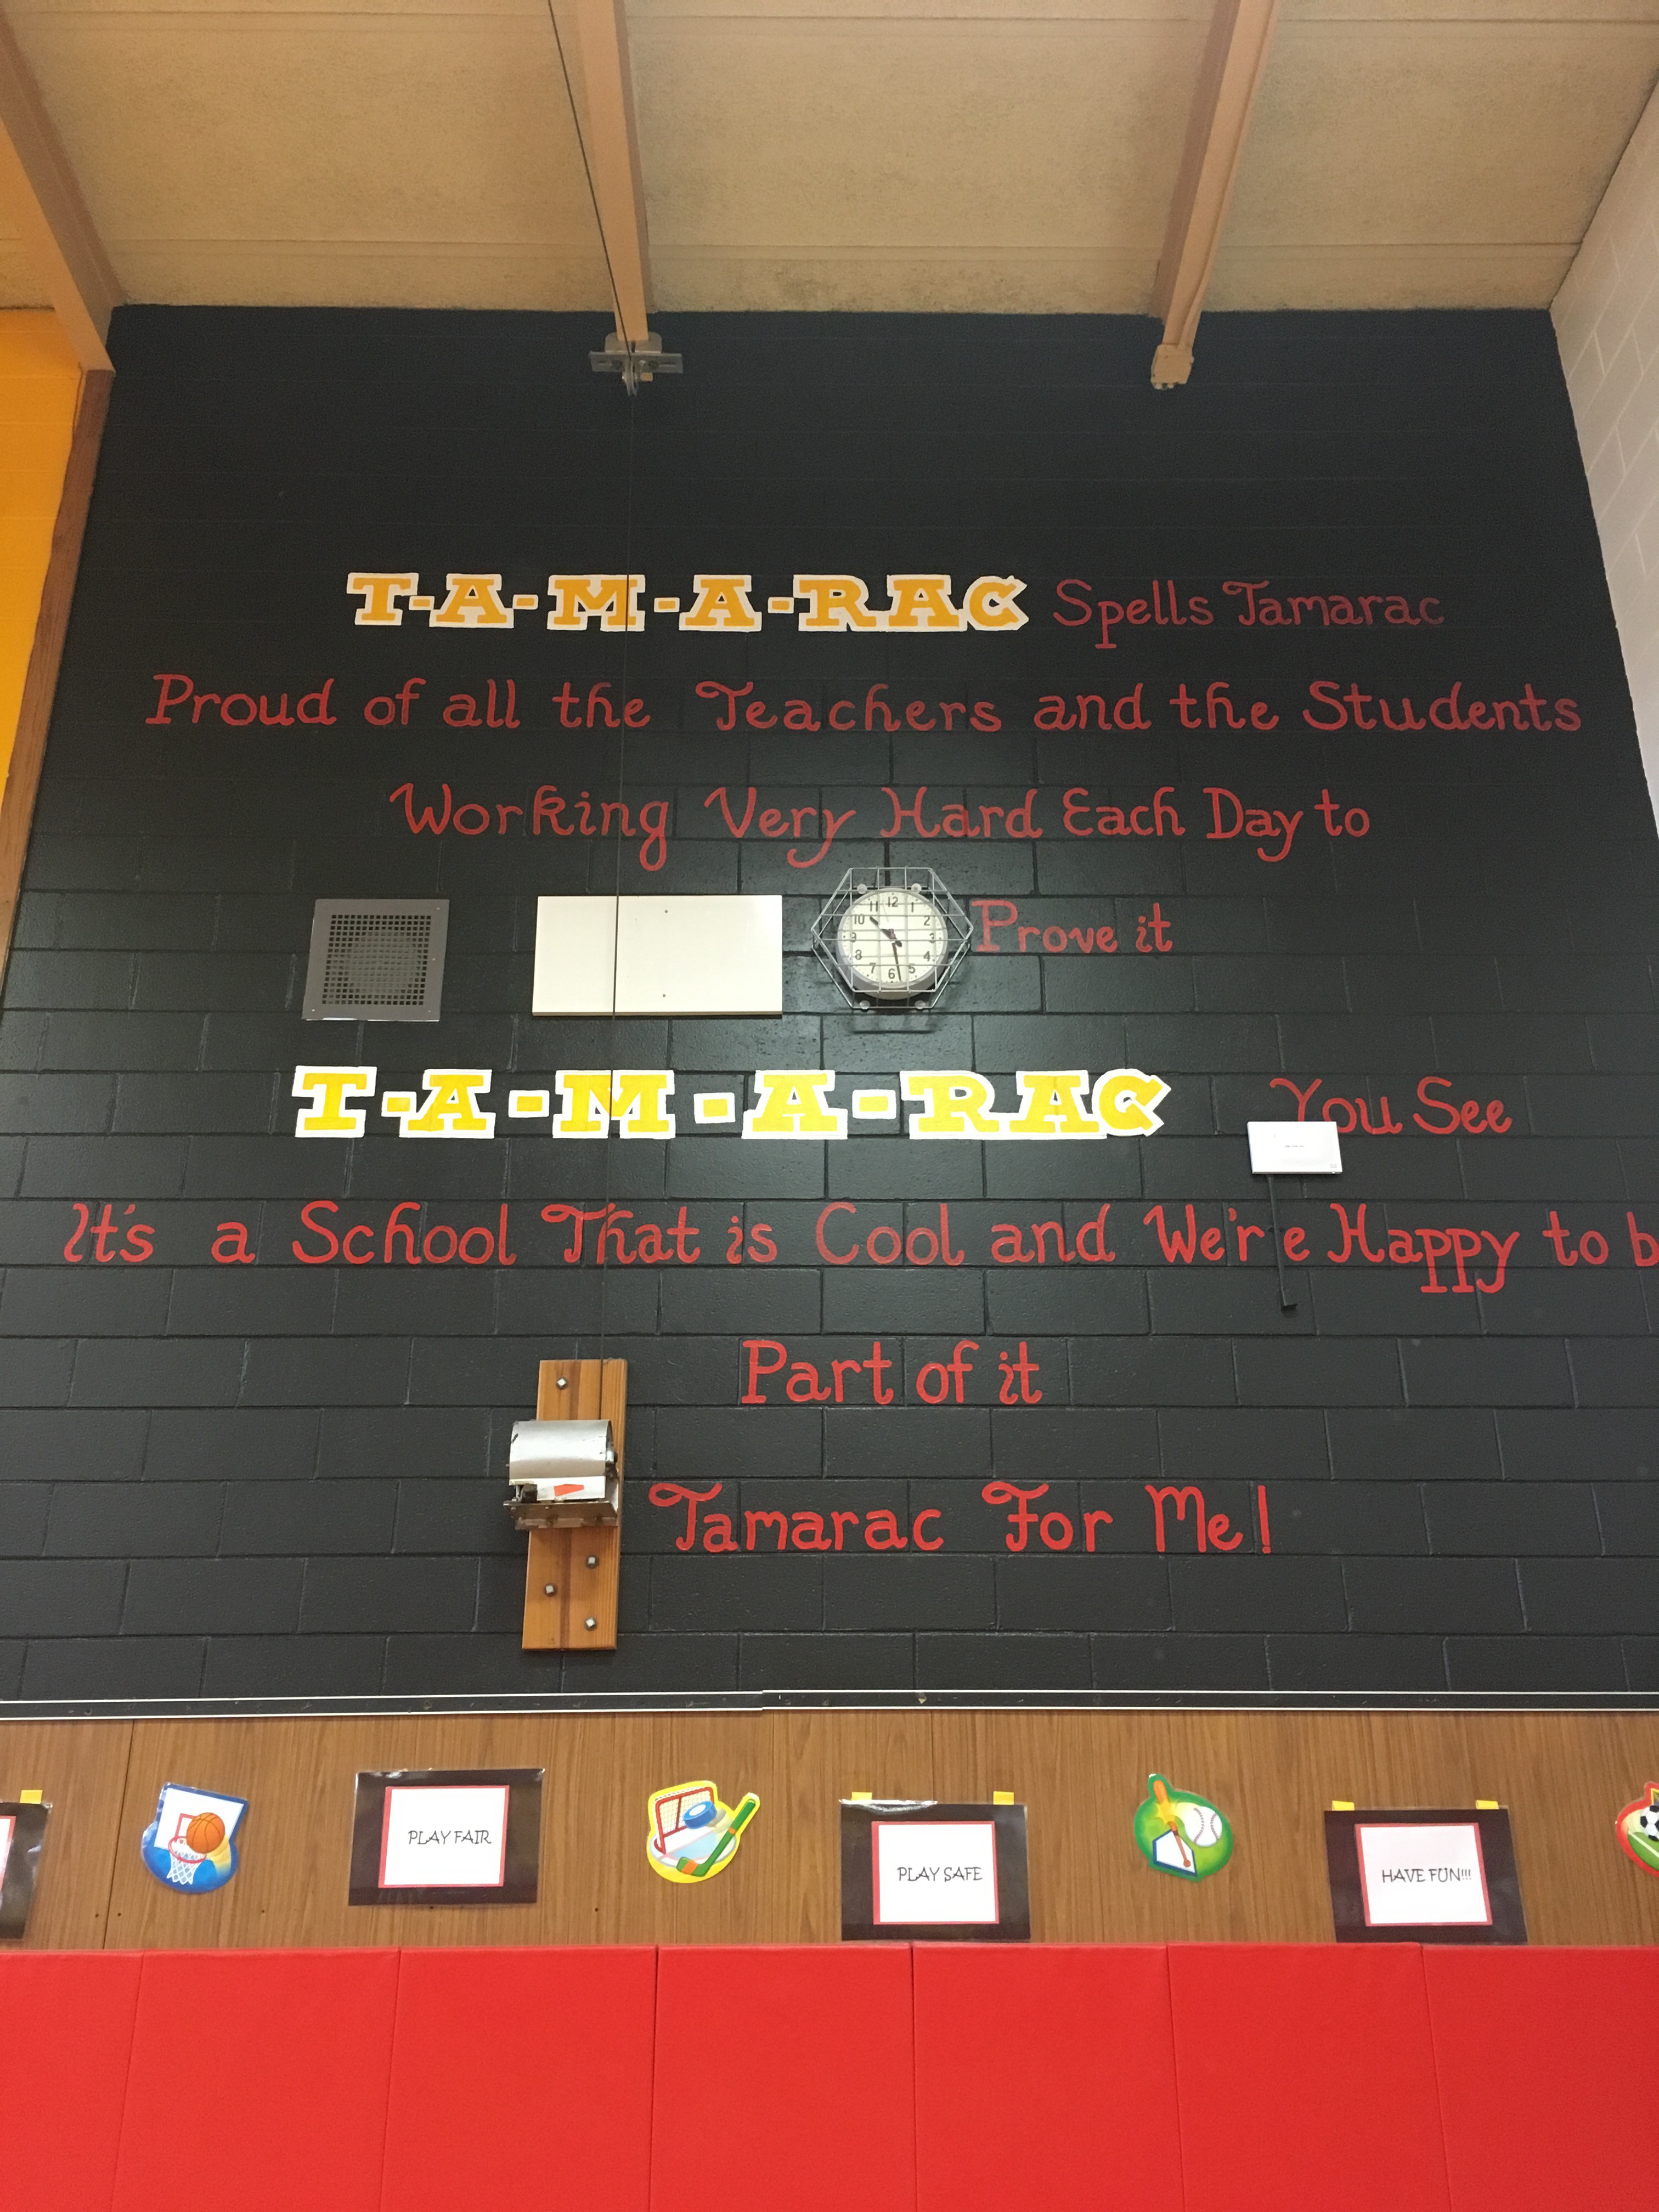 T-A-M-A-RAC Spells Tamarac
Proud of all the Teachers and the Students
Working Very Hard Each Day to
11 12 1
10 2
9 3
8 4
7 6 5
Prove it
T-A-M-A-RAC You See
It's a School That is Cool and We're Happy to b
Part of it
Tamarac For Me!
PLAY FAIR
PLAY SAFE
HAVE FUN!!!